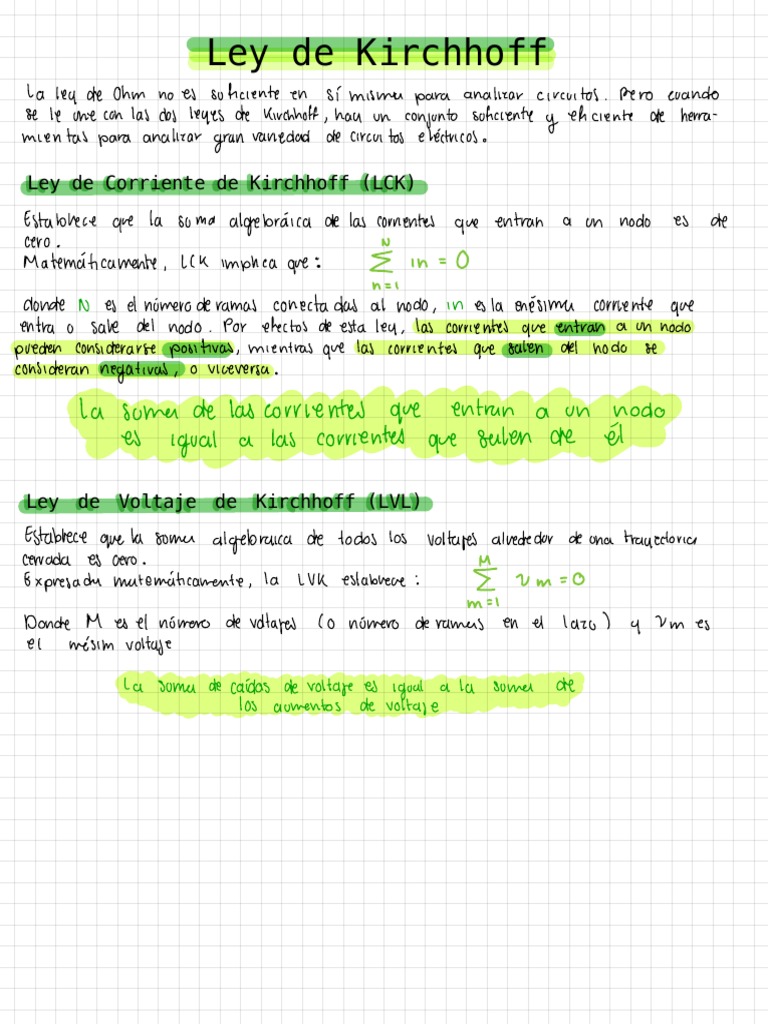 Ley de Kirchhoff
La ley de Ohm no es suficiente en sí misma para analizar circuitos. Pero cuando
se le une con las dos leyes de Kirchhoff, hay un conjunto suficiente y eficiente de herra-
mientas para analizar gran variedad de circuitos eléctricos.
Ley de Corriente de Kirchhoff (LCK)
Establrece que la suma algebráica de las corrientes que entran a un nodo es de
cero.
Matemáticamente, LCK implica que: N ∑ n=1 in = 0
donde N es el número de ramas conectadas al nodo, in es la enésima corriente que
entra o sale del nodo. Por efectos de esta ley, las corrientes que entran a un nodo
pueden considerarse positivas, mientras que las corrientes que salen del nodo se
consideran negativas, o viceversa.
La suma de las corrientes que entran a un nodo
es igual a las corrientes que salen de él
Ley de Voltaje de Kirchhoff (LVL)
Establrece que la suma algebraica de todos los voltajes alrededor de una trayectoria
cerrada es cero.
Expresada matemáticamente, la LVK eslabrece: M ∑ m=1 vm = 0
Donde M es el número de voltajes (o número de ramas en el lazo) y vm es
el mésim voltaje
La suma de caídos de voltaje es igual a la suma de
los aumentos de voltaje